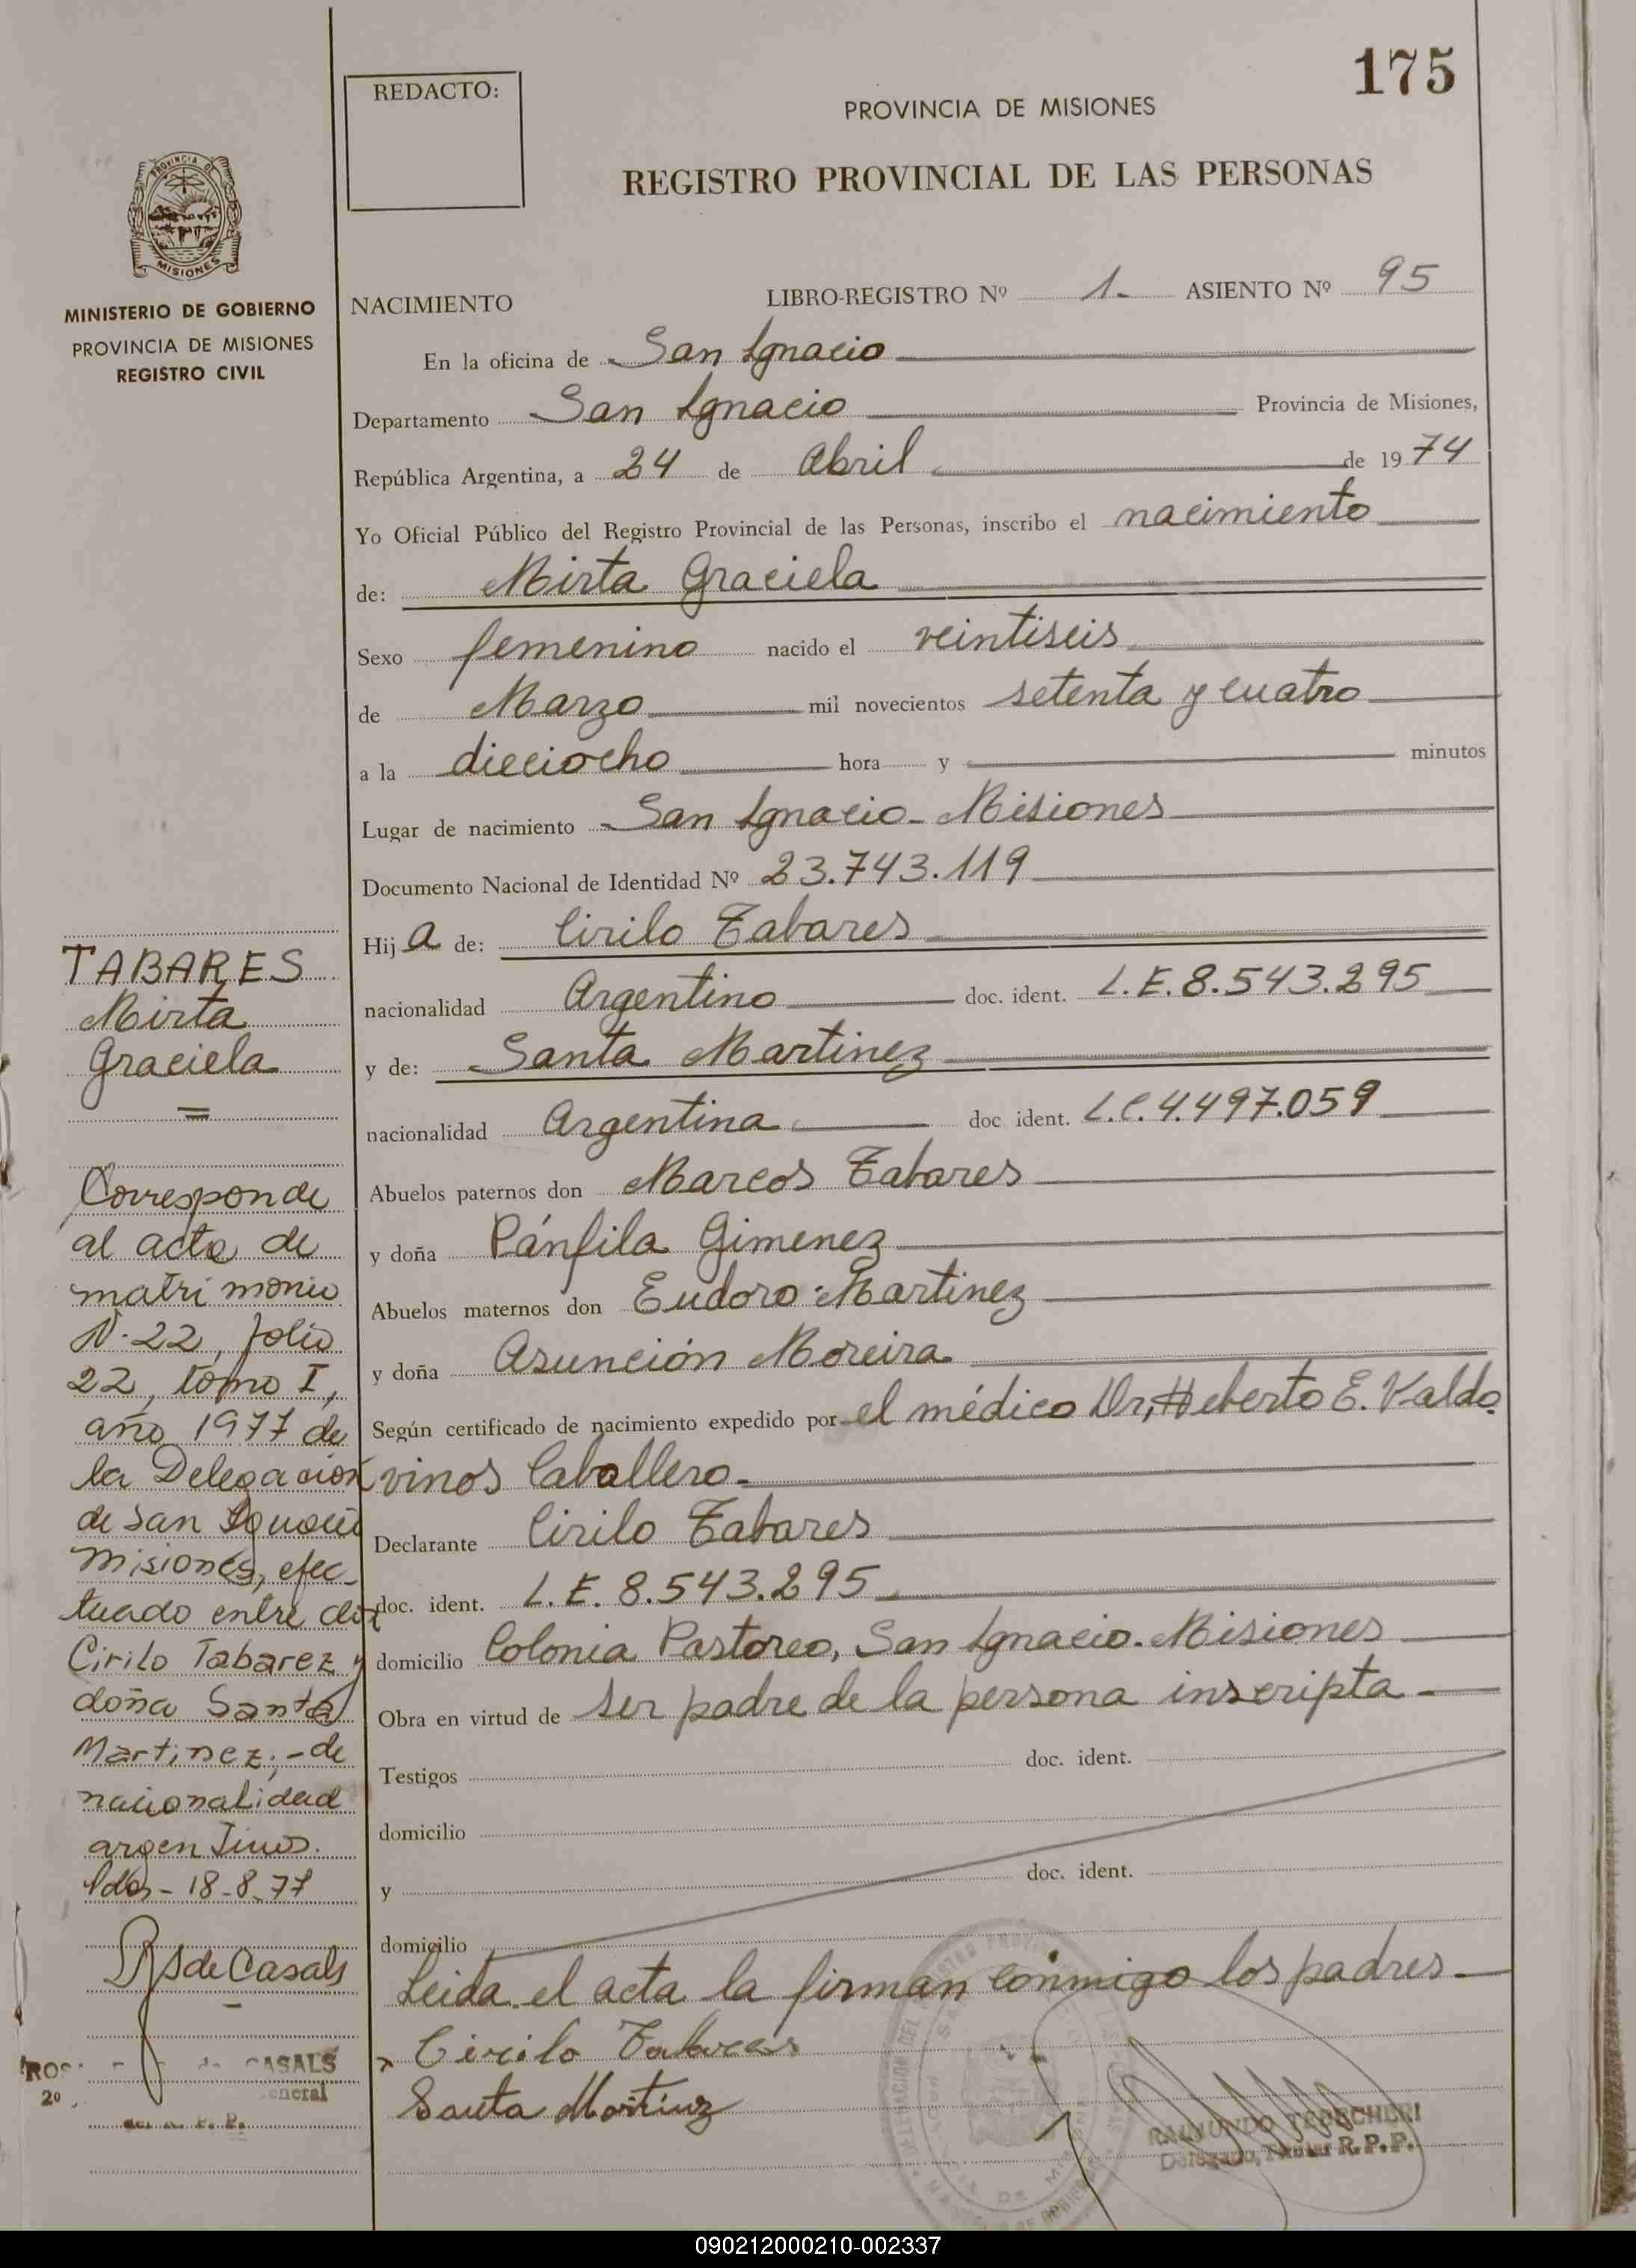 175
REDACTO:
PROVINCIA DE MISIONES
REGISTRO PROVINCIAL DE LAS PERSONAS
PROVINCIA DE
MISIONES
MINISTERIO DE GOBIERNO
PROVINCIA DE MISIONES
REGISTRO CIVIL
NACIMIENTO LIBRO-REGISTRO Nº 1.- ASIENTO Nº 95
En la oficina de San Ignacio
Departamento San Ignacio Provincia de Misiones,
República Argentina, a 24 de Abril de 1974
Yo Oficial Público del Registro Provincial de las Personas, inscribo el nacimiento
de: Mirta Graciela
Sexo femenino nacido el veintiseis
de Marzo mil novecientos setenta y cuatro
a la dieciocho hora y minutos
Lugar de nacimiento San Ignacio - Misiones
Documento Nacional de Identidad Nº 23.743.119
Hija de: Cirilo Tabares
nacionalidad Argentino doc. ident. L.E. 8.543.295
y de: Santa Martinez
nacionalidad Argentina doc. ident. L.C. 4.497.059
Abuelos paternos don Marcos Tabares
y doña Pánfila Gimenez
Abuelos maternos don Eudoro Martinez
y doña Asunción Moreira
Según certificado de nacimiento expedido por el médico Dr, Heberto E. Valdo
vinos Caballero.
Declarante Cirilo Tabares
doc. ident. L.E. 8.543.295
domicilio Colonia Pastoreo, San Ignacio. Misiones
Obra en virtud de ser padre de la persona inscripta
Testigos doc. ident.
domicilio
y doc. ident.
domicilio
Leida el acta la firman conmigo los padres
Cirilo Tabares
Santa Martinez
RAIMUNDO
Delegado Titular R.P.P.
TABARES
Mirta
Graciela
=
Corresponde
al acta de
matrimonio
N. 22, folio
22, tomo I,
año 1977 de
la Delegación
de San Ignacio
Misiones, efec-
tuado entre don
Cirilo Tabarez y
doña Santa
Martinez; - de
nacionalidad
argentinos.
Pdas - 18-8-77
RS de Casals
CASALS
eneral
R. P. P.
090212000210-002337